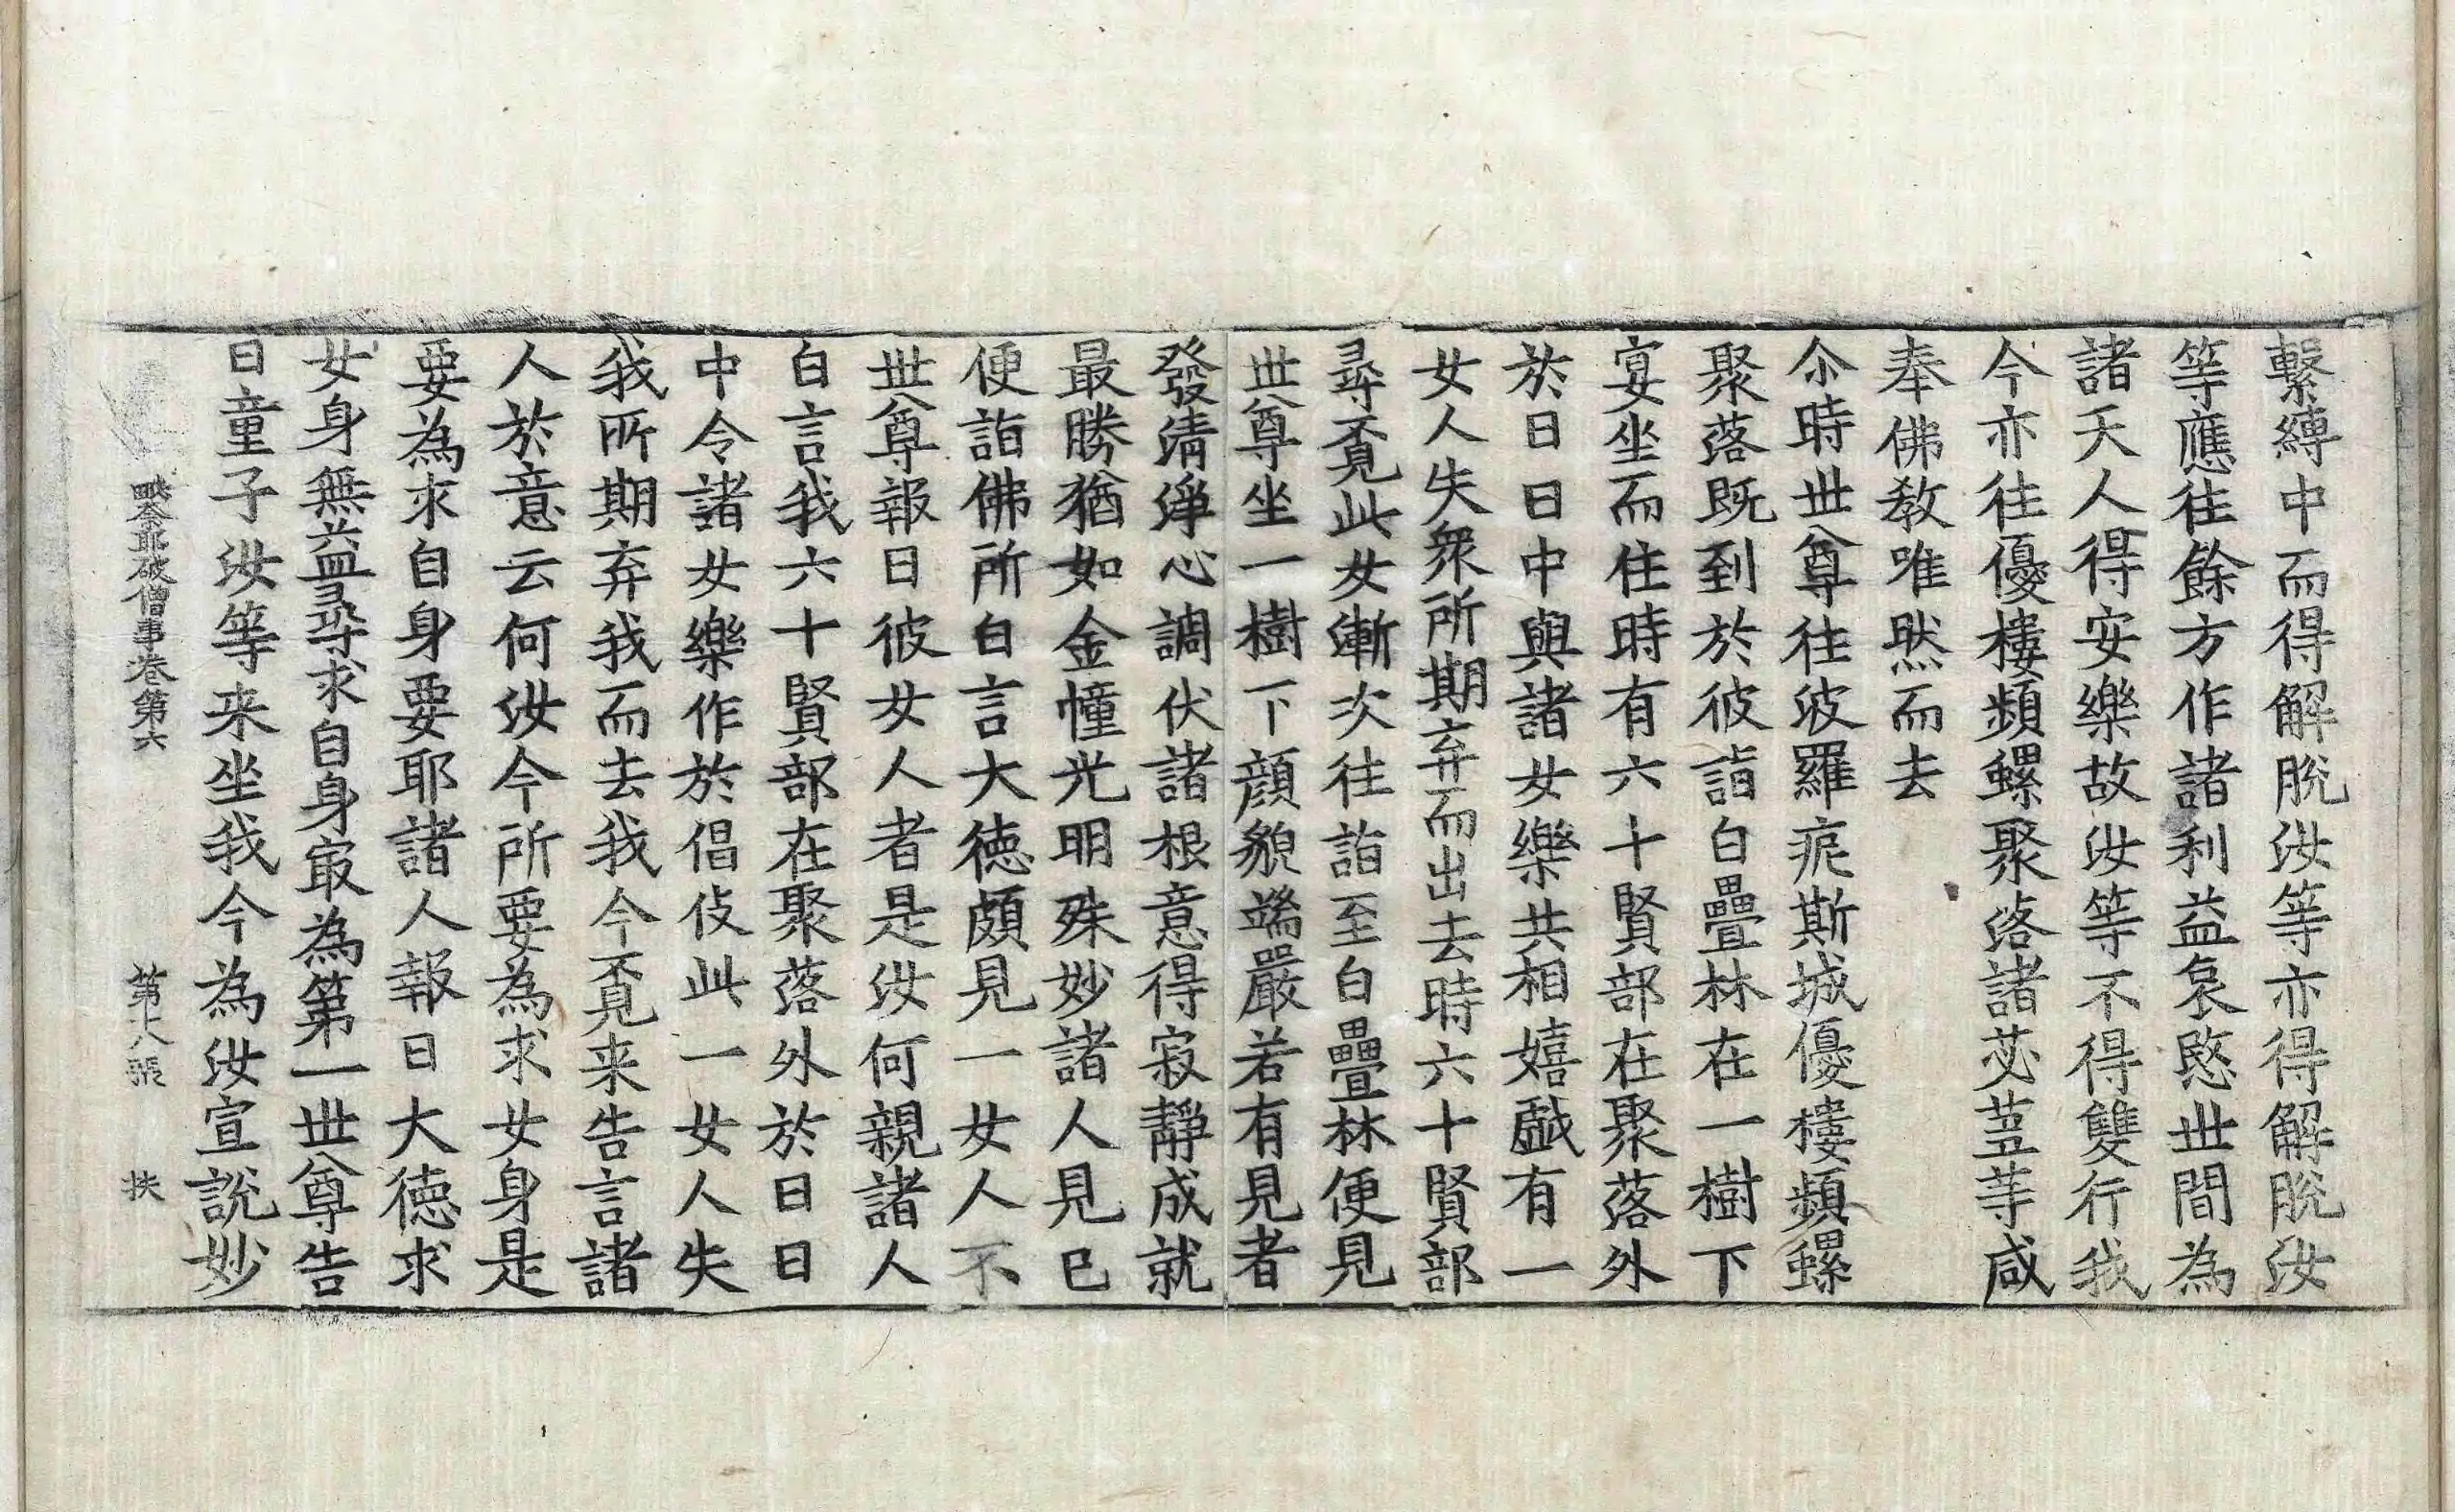 繫縛中而得解脫汝等亦得解脫汝
等應往餘方作諸利益哀愍世間為
諸天人得安樂故汝等不得雙行我
今亦往優樓頻螺聚落諸苾芻等咸
奉佛教唯然而去
尒時世尊往波羅痆斯城優樓頻螺
聚落既到於彼詣白疊林在一樹下
宴坐而住時有六十賢部在聚落外
於日日中與諸女樂共相嬉戲有一
女人失衆所期弃而出去時六十賢部
尋覔此女漸次往詣至白疊林便見
世尊坐一樹下顔貌端嚴若有見者
發清淨心調伏諸根意得寂靜成就
最勝猶如金幢光明殊妙諸人見已
便詣佛所白言大德頗見一女人不
世尊報曰彼女人者是汝何親諸人
白言我六十賢部在聚落外於日日
中令諸女樂作於倡伎此一女人失
我所期弃我而去我今覔来告言諸
人於意云何汝今所要為求女身是
要為求自身要耶諸人報曰大德求
女身無益尋求自身㝡為第一世尊告
曰童子汝等来坐我今為汝宣說妙
破僧事卷第六 第十八張 扶